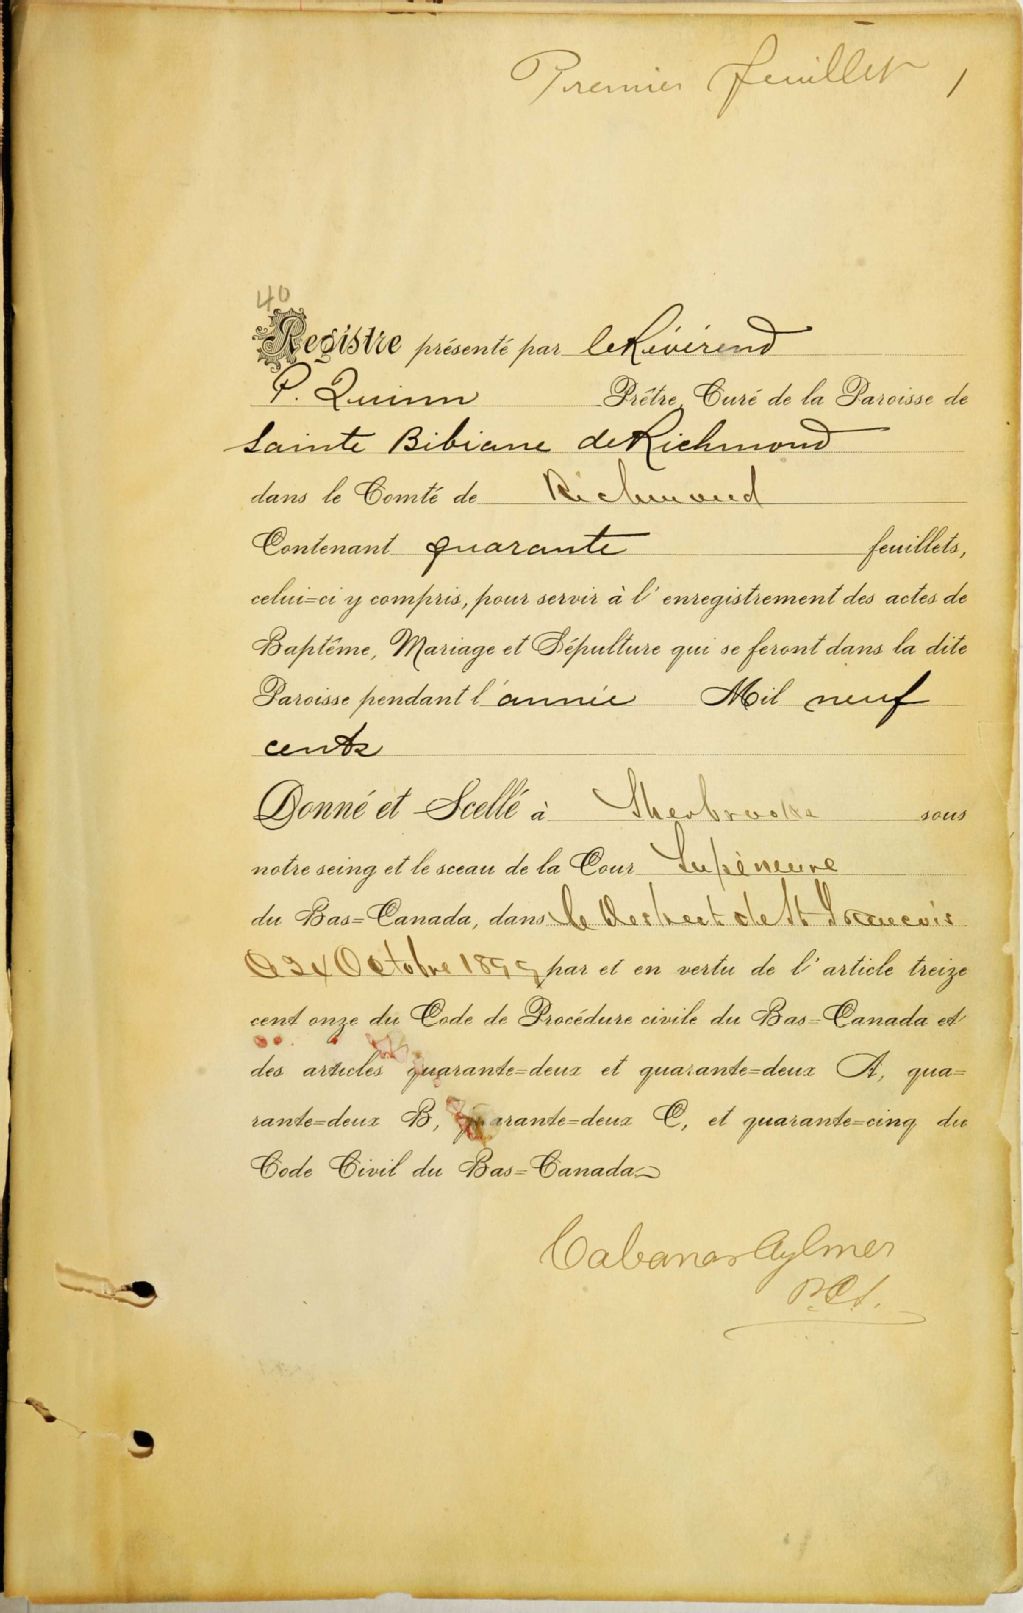 Premier feuillet 1
40
Registre présenté par le Révérend
P. Quinn Prêtre, Curé de la Paroisse de
Sainte Bibiane de Richmond
dans le Comté de Richmond
Contenant quarante feuillets,
celui=ci y compris, pour servir à l'enregistrement des actes de
Baptême, Mariage et Sépulture qui se feront dans la dite
Paroisse pendant l'année Mil neuf
cents
Donné et Scellé à Sherbrooke sous
notre seing et le sceau de la Cour Supérieure
du Bas=Canada, dans le District de St François
Octobre 1899 par et en vertu de l'article treize
cent onze du Code de Procédure civile du Bas=Canada et
des articles quarante=deux et quarante=deux A, qua=
rante=deux B, quarante=deux C, et quarante=cinq du
Code Civil du Bas=Canada
Cabana & Aylmer
P.C.S.